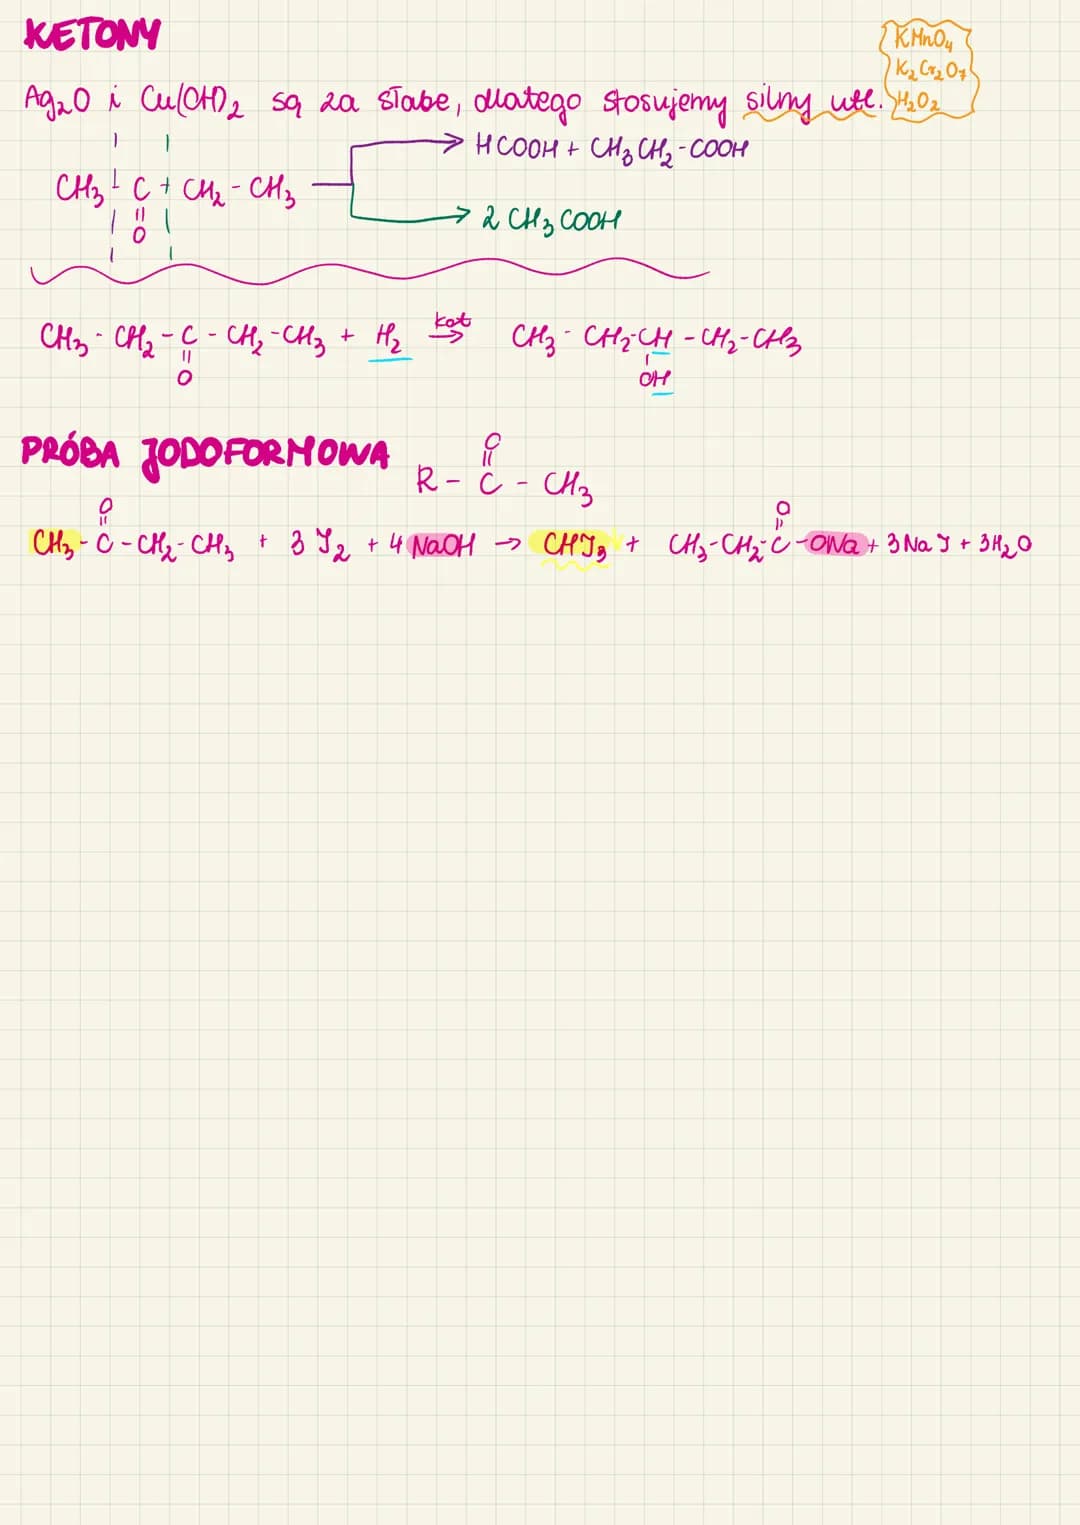 KETONY
KMnO₄
K₂Cr₂O₇
H₂O₂
Ag₂O i Cu(OH)₂ są za słabe, dlatego stosujemy silny utl.
HCOOH + CH₃CH₂-COOH
CH₃ - C + CH₂ - CH₃
=
O
2 CH₃COOH
CH₃ - CH₂ - C - CH₂ - CH₃ + H₂ →kat CH₃ - CH₂-CH - CH₂-CH₃
=
O
OH
PRÓBA JODOFORMOWA
O
=
R - C - CH₃
O
=
O
=
CH₃ - C - CH₂ - CH₃ + 3 J₂ + 4 NaOH → CHJ₃↓ + CH₃-CH₂-C-ONa + 3NaJ + 3H₂O